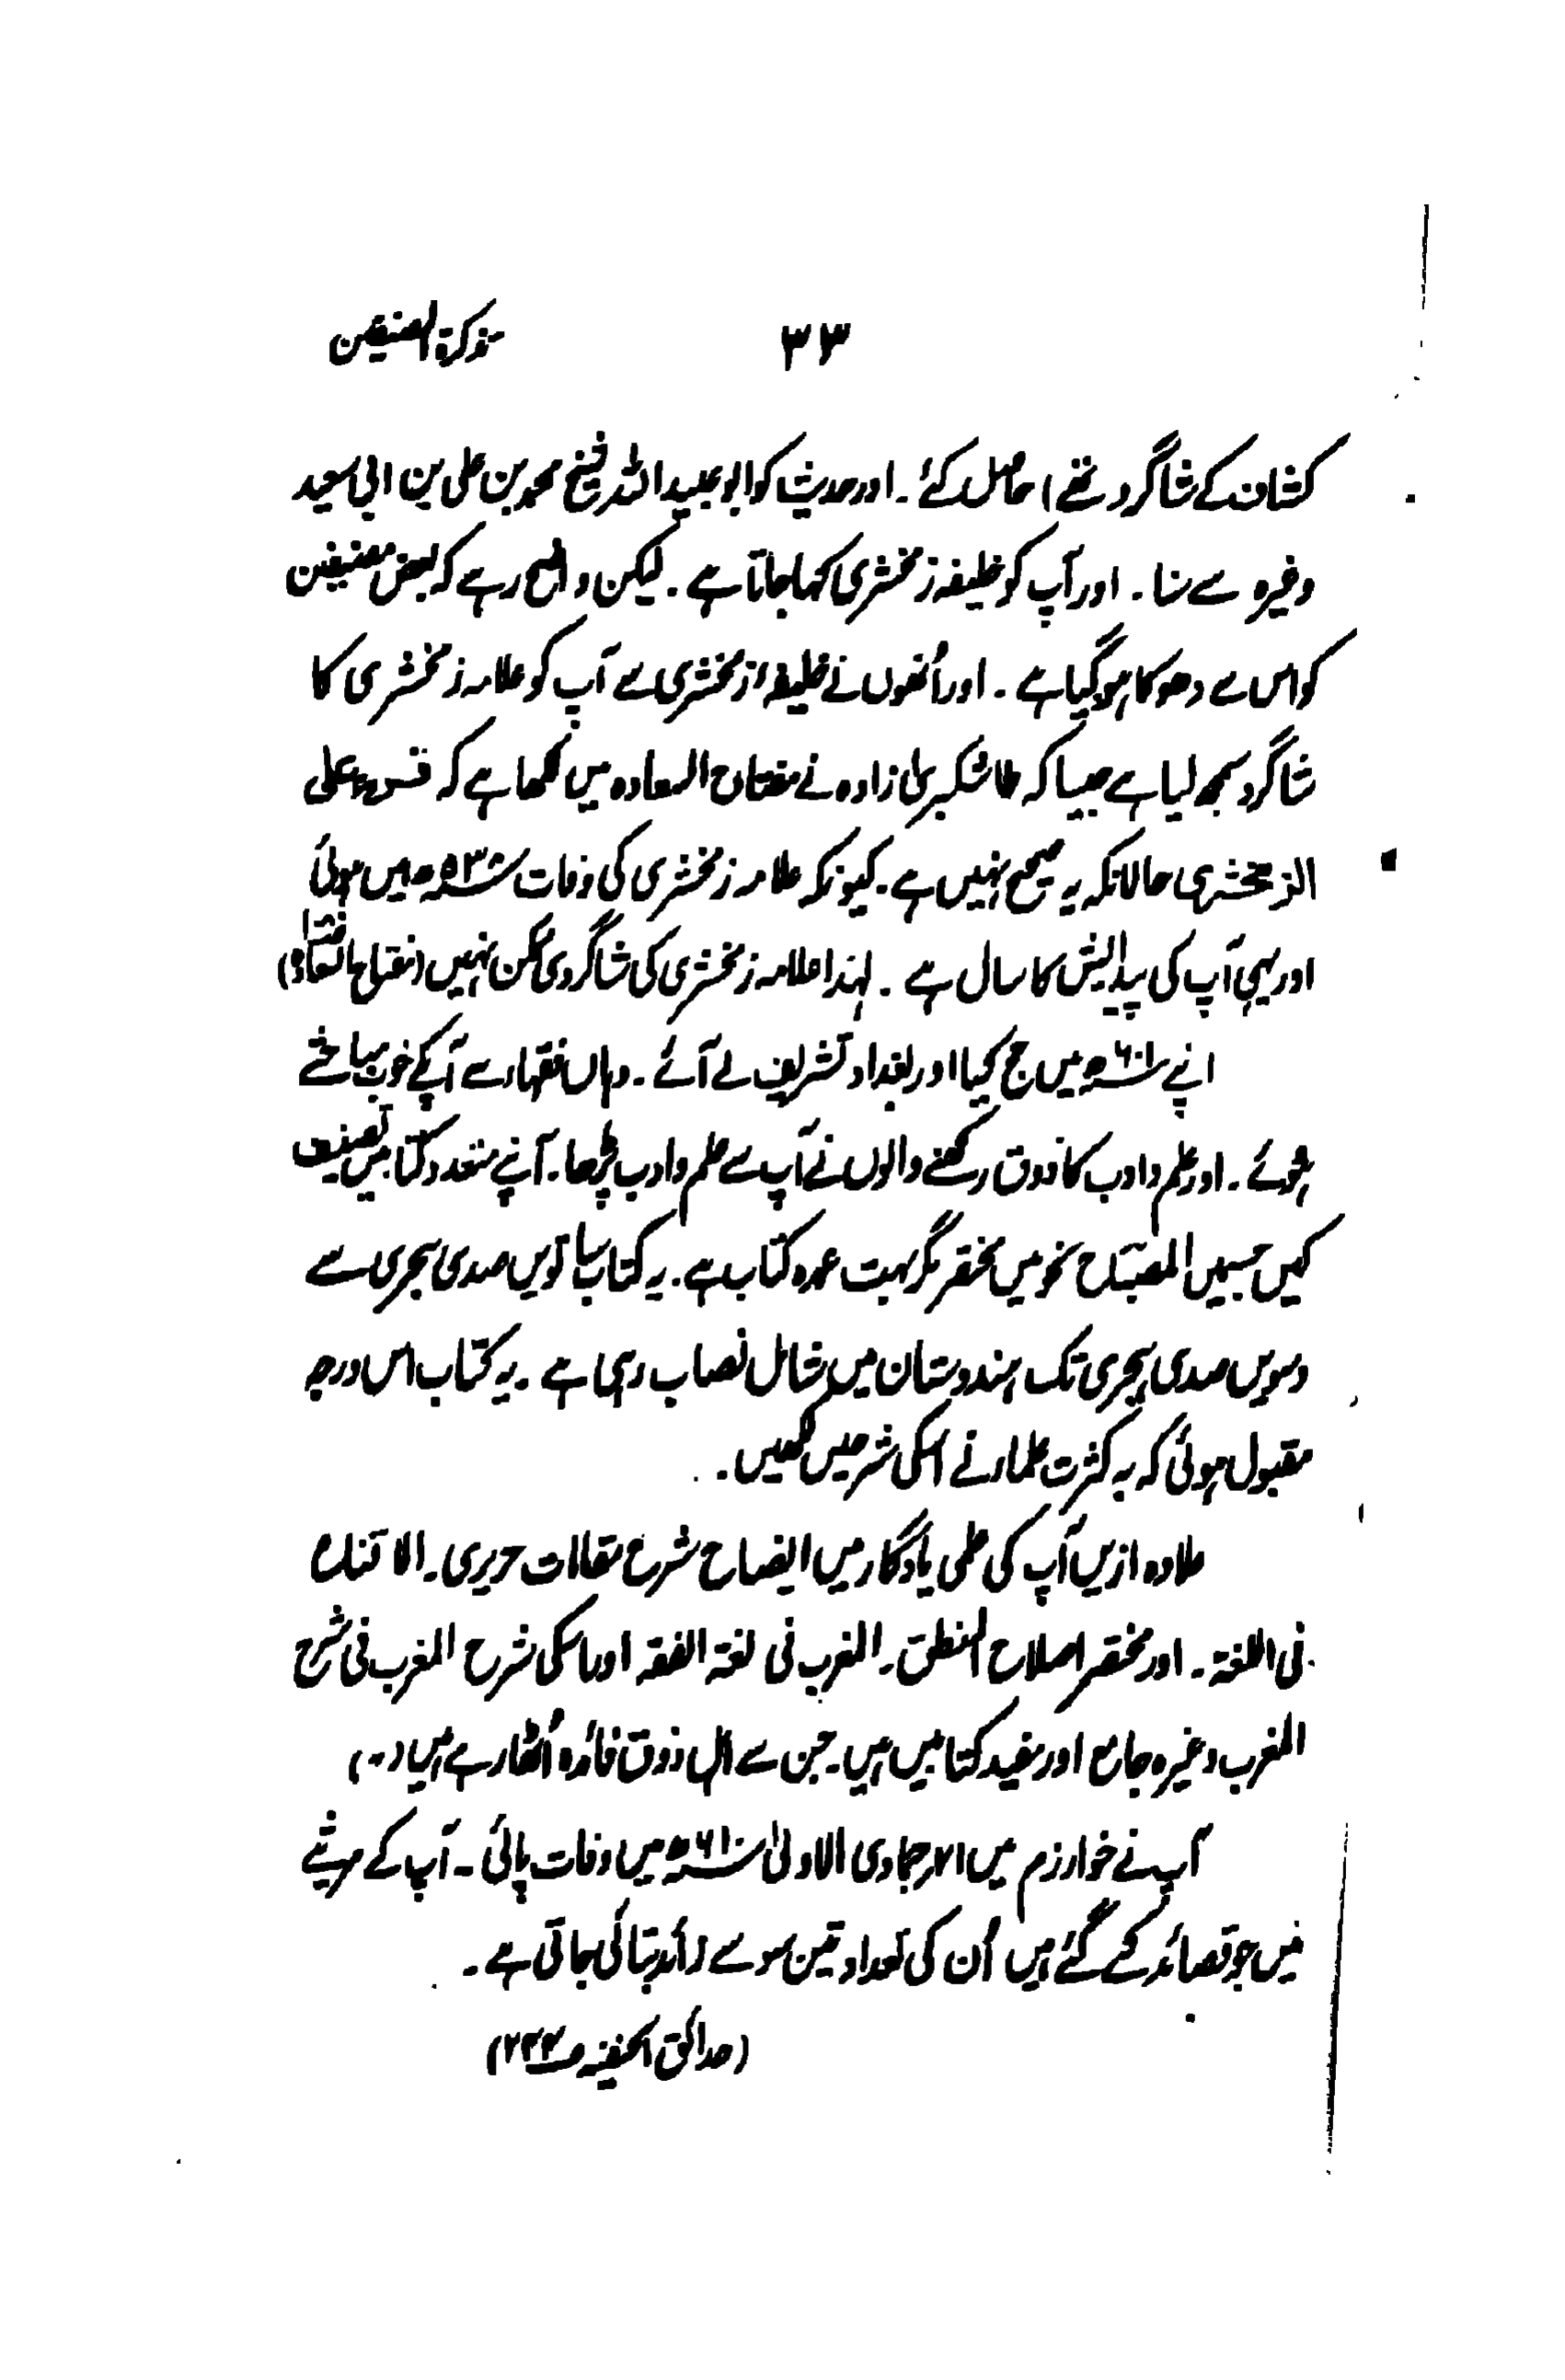 ۳۳ تذکرۃ المصنفین
کشاف کے شاگرد تھے) حاصل کئے۔ اور حدیث کو ابو عبید اللہ شیخ محمد بن علی بن ابی سعید
وغیرہ سے سنا۔ اور آپ کو خلیفہ زمخشری کہا جاتا ہے۔ لیکن واضح رہے کہ بعض مصنفین
کو اس سے دھوکا ہو گیا ہے۔ اور اُنھوں نے خلیفہ زمخشری سے آپ کو علامہ زمخشری کا
شاگرد سمجھ لیا ہے جیسا کہ طاشکبری زادہ نے مفتاح السعادہ میں لکھا ہے کہ قرء علی
الزمخشری حالانکہ یہ صحیح نہیں ہے۔ کیونکہ علامہ زمخشری کی وفات ۵۳۸ھ میں ہوئی
اور یہی آپ کی پیدائش کا سال ہے۔ لہٰذا علامہ زمخشری کی شاگردی ممکن نہیں (مفتاح السعادۃ)
آپنے ۶۰۱ھ میں حج کیا اور بغداد تشریف لے آئے۔ وہاں فقہاء سے آپکے خوب مباحثے
ہوئے۔ اور علم و ادب کا ذوق رکھنے والوں نے آپ سے علم و ادب پڑھا۔ آپنے متعدد کتابیں تصنیف
کیں جسمیں المصباح نحو میں مختصر مگر بہت عمدہ کتاب ہے۔ یہ کتاب ساتویں صدی ہجری سے
دسویں صدی ہجری تک ہندوستان میں شامل نصاب رہی ہے۔ یہ کتاب اس درجہ
مقبول ہوئی کہ بہ کثرت علماء نے اسکی شرحیں لکھیں۔
علاوہ ازیں آپ کی علمی یادگار میں ایضاح شرح مقامات حریری۔ الاقناع
فی اللغۃ۔ اور مختصر اصلاح المنطق۔ المغرب فی لغۃ الفقہ اور اسکی شرح المغرب فی شرح
المغرب وغیرہ جامع اور مفید کتابیں ہیں۔ جن سے اہل ذوق فائدہ اُٹھا رہے ہیں (۔۔)
آپ نے خوارزم میں ۲۱؍ جمادی الاولیٰ ۶۱۰ھ میں وفات پائی۔ آپ کے مرثیے
میں جو قصائد کہے گئے ہیں اُن کی تعداد تین سو سے زائد بتائی جاتی ہے۔
(حدائق الحنفیہ ص۲۳۳)